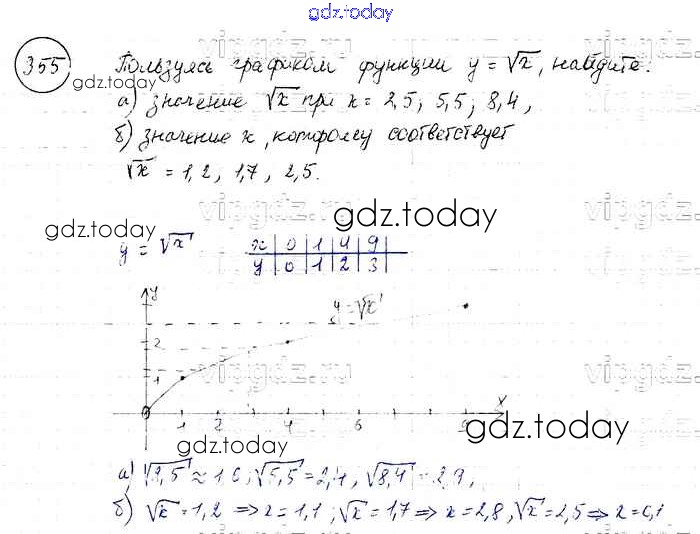 gdz.today
355 Пользуясь графиком функции y = √x, найдите:
gdz.today
а) значение √x при x = 2,5; 5,5; 8,4,
б) значение x, которому соответствует
√x = 1,2, 1,7, 2,5.
vipgdz.ru
gdz.today
gdz.today
y = √x
x 0 1 4 9
y 0 1 2 3
y
y = √x
2
1
vipgdz.ru
x
1 2 4 6 9
gdz.today
gdz.today
а) √2,5 ≈ 1,6; √5,5 = 2,4, √8,4 = 2,9,
б) √x = 1,2 ⇒ x = 1,1; √x = 1,7 ⇒ x = 2,8, √x = 2,5 ⇒ x = 6,1